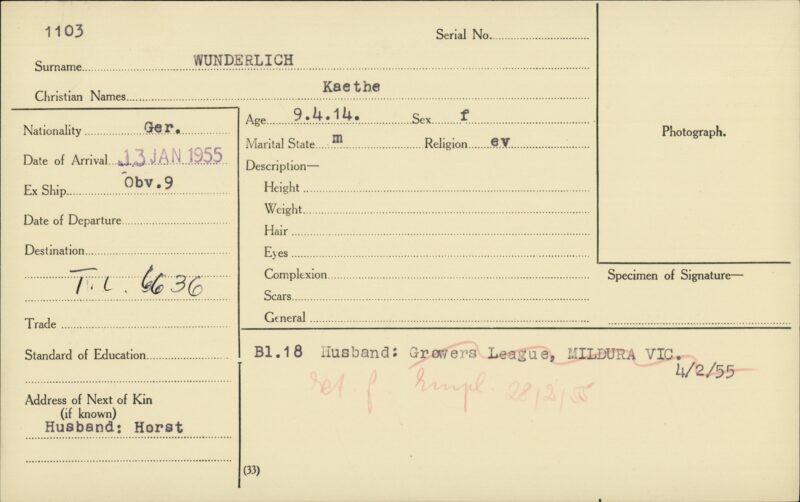 1103
Serial No.
Surname WUNDERLICH
Christian Names Kaethe
Nationality Ger.
Date of Arrival 13 JAN 1955
Ex Ship Obv.9
Date of Departure
Destination
T.L. 6636
Trade
Standard of Education
Address of Next of Kin
(if known)
Husband: Horst
Age 9.4.14. Sex f
Marital State m Religion ev
Description—
Height
Weight
Hair
Eyes
Complexion
Scars
General
Photograph.
Specimen of Signature—
Bl.18 Husband: Growers League, MILDURA VIC.
4/2/55
ret. f. Empl. 28/2/55
(33)